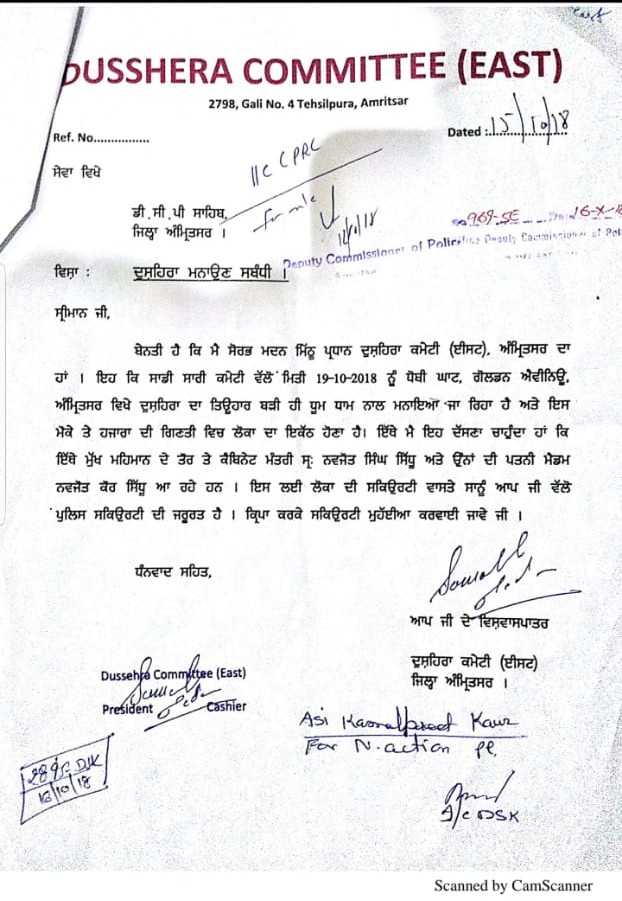 DUSSHERA COMMITTEE (EAST)
2798, Gali No. 4 Tehsilpura, Amritsar
Ref. No................
Dated :.15/10/18
ਸੇਵਾ ਵਿਖੇ
IIC CPRC
ਡੀ.ਸੀ.ਪੀ ਸਾਹਿਬ,
ਜਿਲ੍ਹਾ ਅੰਮ੍ਰਿਤਸਰ ।
for n/c
969-SE 16-X-18
Deputy Commissioner of Police
Deputy Commissioner of Pol
ਵਿਸ਼ਾ : ਦੁਸ਼ਹਿਰਾ ਮਨਾਉਣ ਸਬੰਧੀ ।
ਸ਼੍ਰੀਮਾਨ ਜੀ,
ਬੇਨਤੀ ਹੈ ਕਿ ਮੈ ਸੋਰਭ ਮਦਨ ਮਿੱਠੂ ਪ੍ਰਧਾਨ ਦੁਸ਼ਹਿਰਾ ਕਮੇਟੀ (ਈਸਟ), ਅੰਮ੍ਰਿਤਸਰ ਦਾ
ਹਾਂ । ਇਹ ਕਿ ਸਾਡੀ ਸਾਰੀ ਕਮੇਟੀ ਵੱਲੋਂ ਮਿਤੀ 19-10-2018 ਨੂੰ ਧੋਬੀ ਘਾਟ, ਗੋਲਡਨ ਐਵੀਨਿਊ,
ਅੰਮ੍ਰਿਤਸਰ ਵਿਖੇ ਦੁਸ਼ਹਿਰਾ ਦਾ ਤਿਉਹਾਰ ਬੜੀ ਹੀ ਧੂਮ ਧਾਮ ਨਾਲ ਮਨਾਇਆਂ ਜਾ ਰਿਹਾ ਹੈ ਅਤੇ ਇਸ
ਮੋਕੇ ਤੇ ਹਜਾਰਾ ਦੀ ਗਿਣਤੀ ਵਿਚ ਲੋਕਾ ਦਾ ਇਕੱਠ ਹੋਣਾ ਹੈ। ਇੱਥੇ ਮੈ ਇਹ ਦੱਸਣਾ ਚਾਹੁੰਦਾ ਹਾਂ ਕਿ
ਇੱਥੇ ਮੁੱਖ ਮਹਿਮਾਨ ਦੇ ਤੋਰ ਤੇ ਕੈਬਿਨੇਟ ਮੰਤਰੀ ਸ੍ਰ: ਨਵਜੋਤ ਸਿੰਘ ਸਿੱਧੂ ਅਤੇ ਉਨਾਂ ਦੀ ਪਤਨੀ ਮੈਡਮ
ਨਵਜੋਤ ਕੋਰ ਸਿੱਧੂ ਆ ਰਹੇ ਹਨ । ਇਸ ਲਈ ਲੋਕਾ ਦੀ ਸਕਿਉਰਟੀ ਵਾਸਤੇ ਸਾਨੂੰ ਆਪ ਜੀ ਵੱਲੋਂ
ਪੁਲਿਸ ਸਕਿਉਰਟੀ ਦੀ ਜਰੂਰਤ ਹੈ । ਕ੍ਰਿਪਾ ਕਰਕੇ ਸਕਿਉਰਟੀ ਮੁਹੱਈਆ ਕਰਵਾਈ ਜਾਵੇ ਜੀ ।
ਧੰਨਵਾਦ ਸਹਿਤ,
ਆਪ ਜੀ ਦੇ ਵਿਸ਼ਵਾਸਪਾਤਰ
ਦੁਸ਼ਹਿਰਾ ਕਮੇਟੀ (ਈਸਟ)
ਜਿਲ੍ਹਾ ਅੰਮ੍ਰਿਤਸਰ ।
Dussehra Committee (East)
President Cashier
Asi Kamalpreet Kaur
For N.action pl.
289 DSK
16/10/18
I/c DSK
Scanned by CamScanner